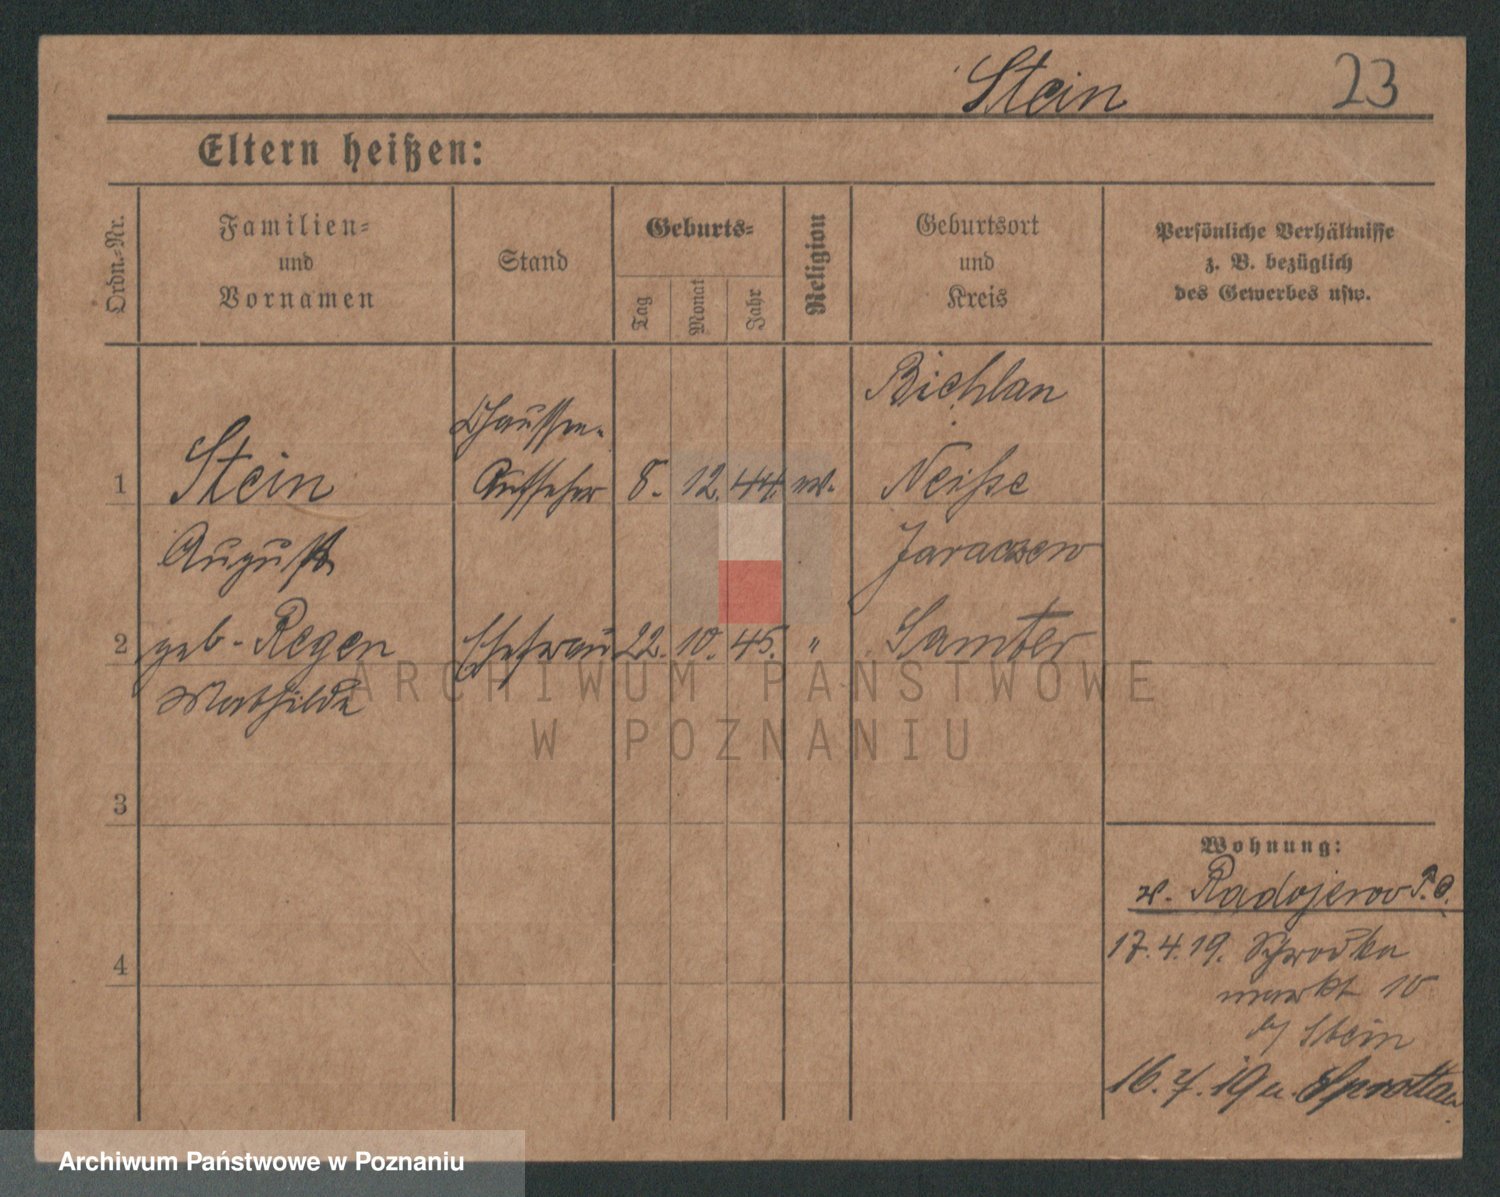 Stein 23
Eltern heißen:
Ordn.=Nr.
Familien=
und
Vornamen
Stand
Geburts=
Tag
Monat
Jahr
Religion
Geburtsort
und
Kreis
Persönliche Verhältnisse
z. B. bezüglich
des Gewerbes usw.
Bichlan
Chaussee-
1 Stein Aufseher 8. 12. 44. ev. Neiße
August Jaraczew
2 geb. Regen Ehefrau 22. 10. 45. " Samter
Mathilde
ARCHIWUM PAŃSTWOWE
W POZNANIU
3
Wohnung:
v. Radojewo P. O.
17.4.19. Schrodka
4
markt 10
b/ Stein
16.7.19 n. Sprottau
Archiwum Państwowe w Poznaniu